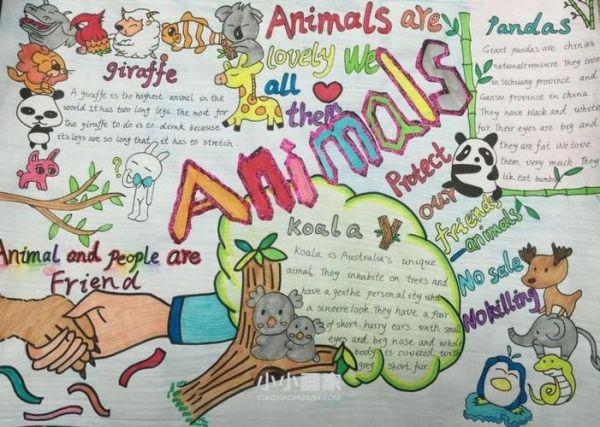 Animals are
lovely We
all
them
Animals
giraffe
A giraffe is the highest animal in the
world. It has two long legs. The most for
the giraffe to do is to drink because
its legs are so long that it has to stretch.
Pandas
Giant pandas are chinas
national treasure. They live
in Sichuang province and
Gansu province in china.
They have black and white
fur. Their eyes are big and
they are fat. We love
them very much. They
lick eat bamboo
?
Protect
our
friends
_animals
No sale
No killing
Animal and people are
Friend
Koala
Koala is Australia's unique
animal. They inhabite on trees and
have a genthe personality and
a sincere look. They have a fair
of short, hairy ears with small
eyes and big nose and whole
body is covered with
grey short fur
小小画家
XIAOXIAOHUAJIA.COM